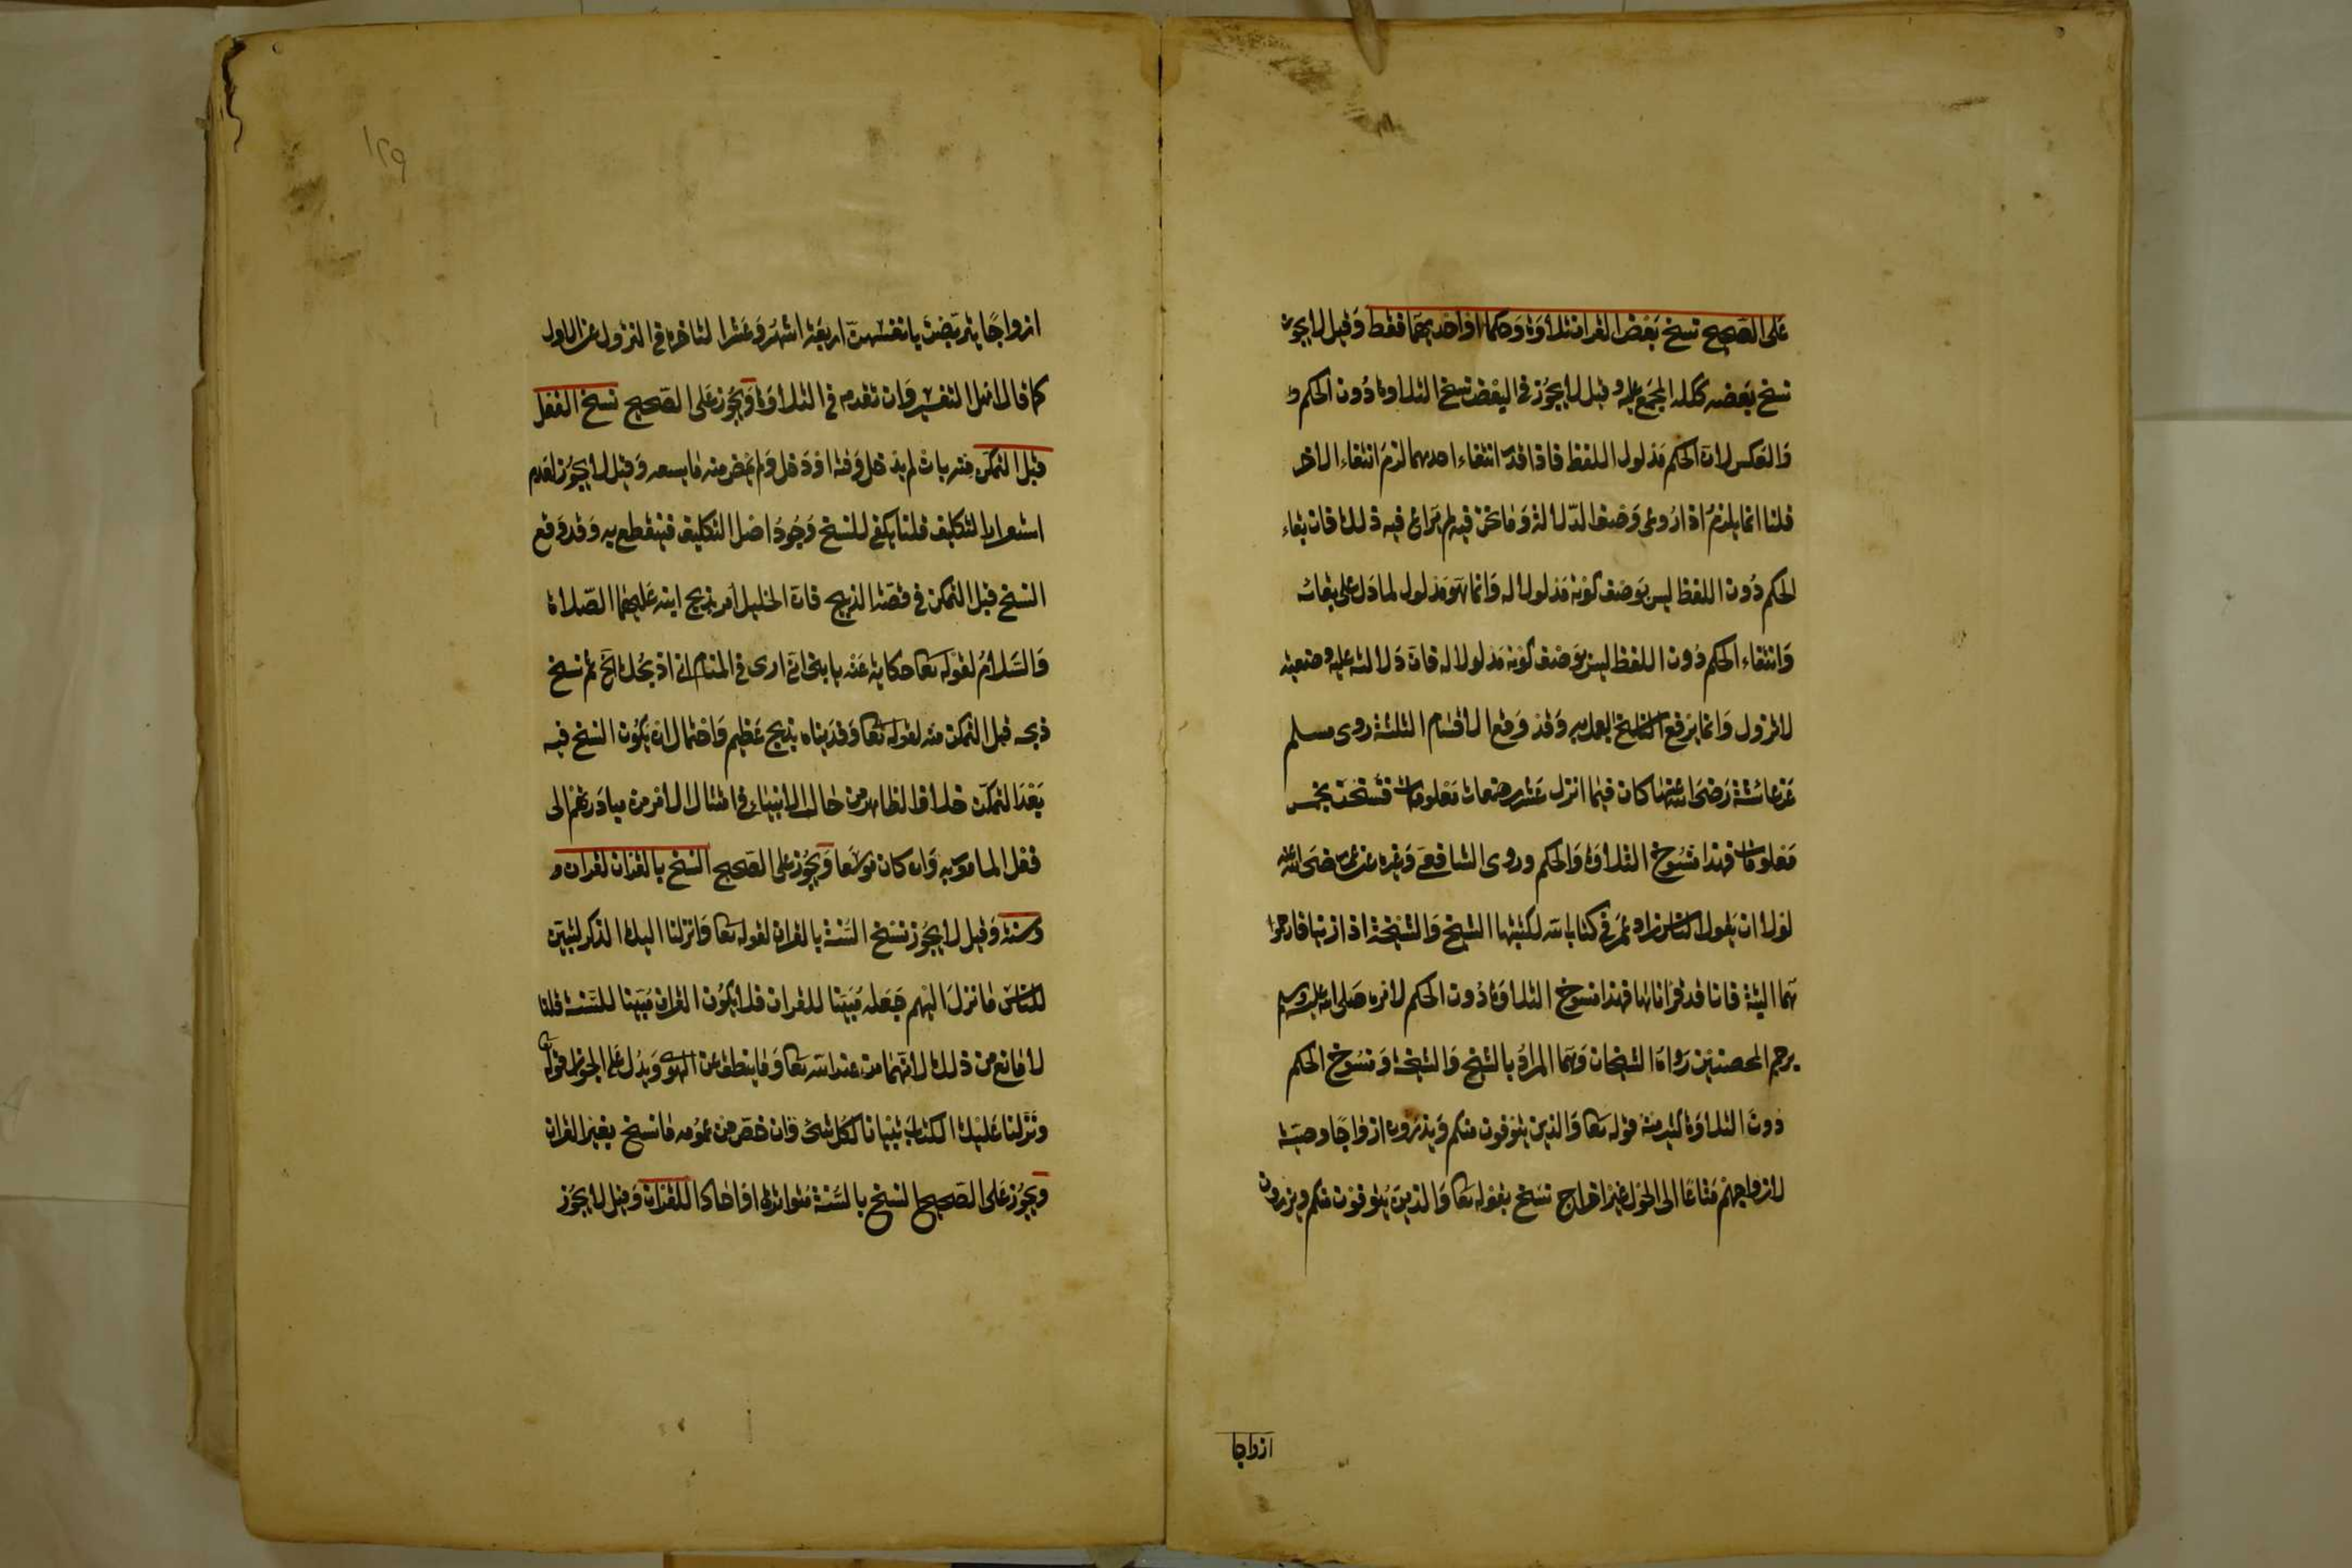 على الصحيح نسخ بعض القران تلاوة وحكما او احدهما فقط وقيل لا يجوز
نسخ بعضه ككله المجمع عليه وقيل لا يجوز في البعض نسخ التلاوة دون الحكم و
والعكس لان الحكم مدلول اللفظ فاذا قدر انتفاء احدهما لزم انتفاء الاخر
قلنا انما يلزم اذا روعي وصف الدلالة وما نحن فيه لم يراع فيه ذلك فان بقاء
الحكم دون اللفظ ليس بوصف كونه مدلولا له وانما هو مدلول لما دل على بقائه
وانتفاء الحكم دون اللفظ ليس بوصف كونه مدلولا له فان دلالته عليه وضعية
لا تزول وانما يرفع الناسخ العمل به وقد وقع الاقسام الثلثة روى مسلم
عن عائشة رضى الله عنها كان فيما انزل عشر رضعات معلومات فنسخت بخمس
معلومات فهذا منسوخ التلاوة والحكم وروى الشافعي وغيره عن عمر رضى الله عنه
لولا ان يقول الناس زاد عمر في كتاب الله لكتبتها الشيخ والشيخة اذا زنيا فارجموا
هما البتة فانا قد قراناها فهذا منسوخ التلاوة دون الحكم لامره صلى الله عليه وسلم
برجم المحصنين رواه الشيخان وهما المراد بالشيخ والشيخة ومنسوخ الحكم
دون التلاوة كثير منه قوله تعا والذين يتوفون منكم ويذرون ازواجا وصية
لازواجهم متاعا الى الحول غير اخراج نسخ بقوله تعا والذين يتوفون منكم ويذرون
ازواجا
١٢٩
ازواجا يتربصن بانفسهن اربعة اشهر وعشرا لتاخره في النزول عن الاول
كما قال اهل التفسير وان تقدم في التلاوة ويجوز على الصحيح نسخ الفعل
قبل التمكن منه بان لم يدخل وقته او دخل ولم يمض منه ما يسعه وقيل لا يجوز لعدم
استقرار التكليف قلنا يكفي للنسخ وجود اصل التكليف فينقطع به وقد وقع
النسخ قبل التمكن في قصة الذبيح فان الخليل امر بذبح ابنه عليهما الصلاة
والسلام لقوله تعا حكاية عنه يا بني اني ارى في المنام اني اذبحك الخ ثم نسخ
ذبحه قبل التمكن منه لقوله تعا وفديناه بذبح عظيم واحتمال ان يكون النسخ فيه
بعد التمكن خلاف الظاهر من حال الانبياء في امتثال الامر من مبادرتهم الى
فعل المامور به وان كان موسعا ويجوز على الصحيح النسخ بالقران لقران و
وسنة وقيل لا يجوز نسخ السنة بالقران لقوله تعا وانزلنا اليك الذكر لتبين
للناس ما نزل اليهم جعله مبينا للقران فلا يكون القران مبينا للسنة قلنا
لا مانع من ذلك لانهما من عند الله تعا وما ينطق عن الهوى ويدل على الجواز قوله تعا
ونزلنا عليك الكتاب تبيانا لكل شئ وان خص من عمومه ما نسخ بغير القران
ويجوز على الصحيح النسخ بالسنة متواترة او احادا للقران وقيل لا يجوز